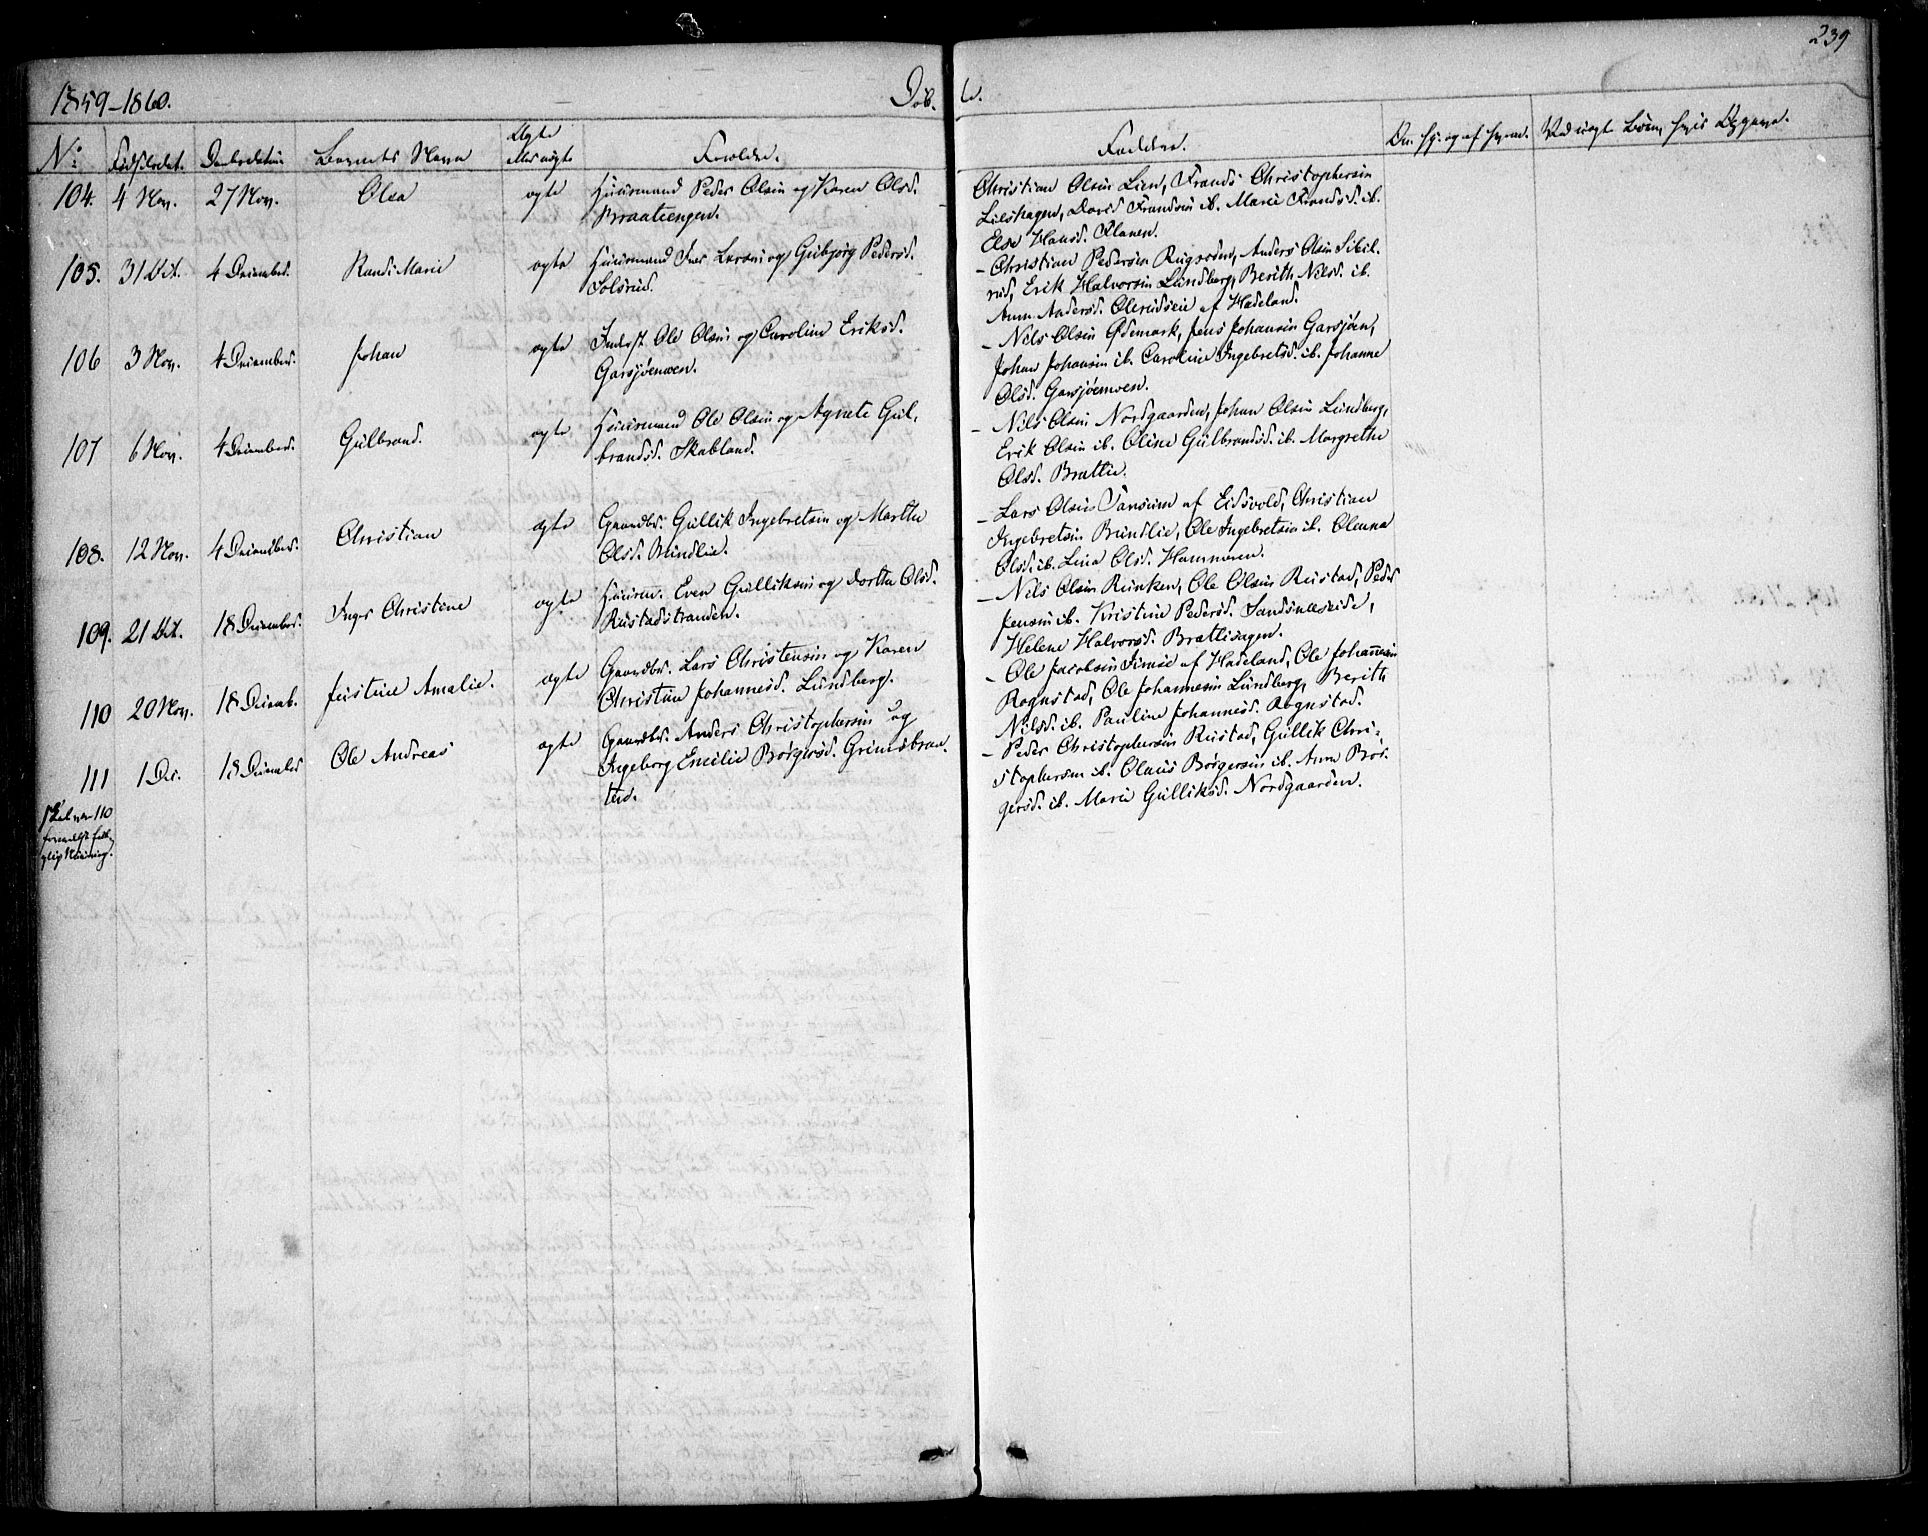 239
1859-1860.
Døb-
te.
No. Fødselsdat. Daabsdatum Barnets Navn Ægte eller uægte Forældre. Faddere.
104. 4 Nov. 27 Nov. Olea ægte Huusmand Peder Olsen og Karen Olsd.
Braateengen.
Christian Olsen Lien, Frands Christophersen
David Frandsen ib. Marie Frandsd. ib.
Else Hansd.
105. 31 Oct. 4 December. Randi Marie ægte Huusmand Iver Larsen og Gubjørg Pedersd.
Solsrud.
- Christian Pedersen Anders Olsen Sibil-
rud, Erik Halvorsen Lundberg, Berith Nilsd. ib.
Anne Andersd. af Hadeland.
106 3 Nov. 4 December. Johan ægte Inderst Ole Olsen og Caroline Eriksd.
Garsjøenwen.
- Nils Olsen Ødemark, Jens Johansen Garsjøen,
Johan Johansen ib. Caroline Ingebretsd. ib. Johanne
Olsd. Garsjøenwen.
107 6 Nov. 4 December. Gulbrand. ægte Huusmand Ole Olsen og Agnete Gul-
brandsd. Skabland.
- Nils Olsen Nordgaarden, Johan Olsen Lundberg,
Erik Olsen ib. Oline Gulbrandsd. ib. Margrethe
Olsd. Brattie.
108. 12 Nov. 4 December. Christian ægte Gaardbr. Gullik Ingebretsen og Marthe
Olsd. Bundlie.
- Lars Olsen af Eidsvold, Christian
Ingebretsen Bundlie, Ole Ingebretsen ib. Oleana
Olsd. ib. Lina Olsd. Hammeren.
109. 21 Oct. 18 December. Inger Christine ægte Huusm. Even Gulliksen og Dorthe Olsd.
Rustadstranden.
- Nils Olsen Runken, Ole Olsen Rustad, Peder
Jensen ib. Kristine Pedersd.
Helene Halvorsd. Brattihagen.
110 20 Nov. 18 Decemb. Justine Amalie. ægte Gaardbr. Lars Christensen og Karen
Christine Johannesd. Lundberg.
- Ole Jacobsen af Hadeland, Ole Johannesen
Rognstad, Ole Johannesen Lundberg, Berith
Nilsd. ib. Pauline Johannesd. Rognstad.
111 1 Dec. 18 December Ole Andreas ægte Gaardbr. Anders Christophersen og
Ingeborg Emilie Børgersd. Grimsbraa-
ten.
- Peder Christophersen Rustad, Gullik Chri-
stophersen ib. Olaus Børgersen ib. Anne Bør-
gersd. ib. Marie Gulliksd. Nordgaarden.
skal være 110